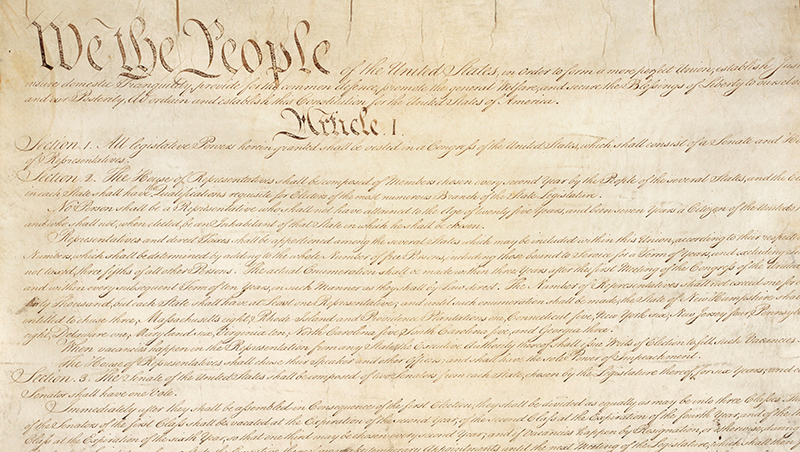 We the People of the United States, in Order to form a more perfect Union, establish Jus
insure domestic Tranquility, provide for the common defence, promote the general Welfare, and secure the Blessings of Liberty to ourse
and our Posterity, do ordain and establish this Constitution for the United States of America.
Article. I.
Section. 1. All legislative Powers herein granted shall be vested in a Congress of the United States, which shall consist of a Senate and Ho
of Representatives.
Section. 2. The House of Representatives shall be composed of Members chosen every second Year by the People of the several States, and the El
in each State shall have the Qualifications requisite for Electors of the most numerous Branch of the State Legislature.
No Person shall be a Representative who shall not have attained to the Age of twenty five Years, and been seven Years a Citizen of the United S
and who shall not, when elected, be an Inhabitant of that State in which he shall be chosen.
Representatives and direct Taxes shall be apportioned among the several States which may be included within this Union, according to their respect
Numbers, which shall be determined by adding to the whole Number of free Persons, including those bound to Service for a Term of Years, and excluding
not taxed, three fifths of all other Persons. The actual Enumeration shall be made within three Years after the first Meeting of the Congress of the United
and within every subsequent Term of ten Years, in such Manner as they shall by Law direct. The Number of Representatives shall not exceed one for
thirty Thousand, but each State shall have at Least one Representative; and until such enumeration shall be made, the State of New Hampshire shall
entitled to chuse three, Massachusetts eight, Rhode Island and Providence Plantations one, Connecticut five, New York six, New Jersey four, Pennsyl
eight, Delaware one, Maryland six, Virginia ten, North Carolina five, South Carolina five, and Georgia three.
When vacancies happen in the Representation from any State, the Executive Authority thereof shall issue Writs of Election to fill such Vacancies.
The House of Representatives shall chuse their Speaker and other Officers; and shall have the sole Power of Impeachment.
Section. 3. The Senate of the United States shall be composed of two Senators from each State, chosen by the Legislature thereof, for six Years; and
Senator shall have one Vote.
Immediately after they shall be assembled in Consequence of the first Election, they shall be divided as equally as may be into three Classes. Th
of the Senators of the first Class shall be vacated at the Expiration of the second Year, of the second Class at the Expiration of the fourth Year, and of the th
Class at the Expiration of the sixth Year, so that one third may be chosen every second Year; and if Vacancies happen by Resignation, or otherwise, during
Appointments until the next Meeting of the Legislature, which shall then